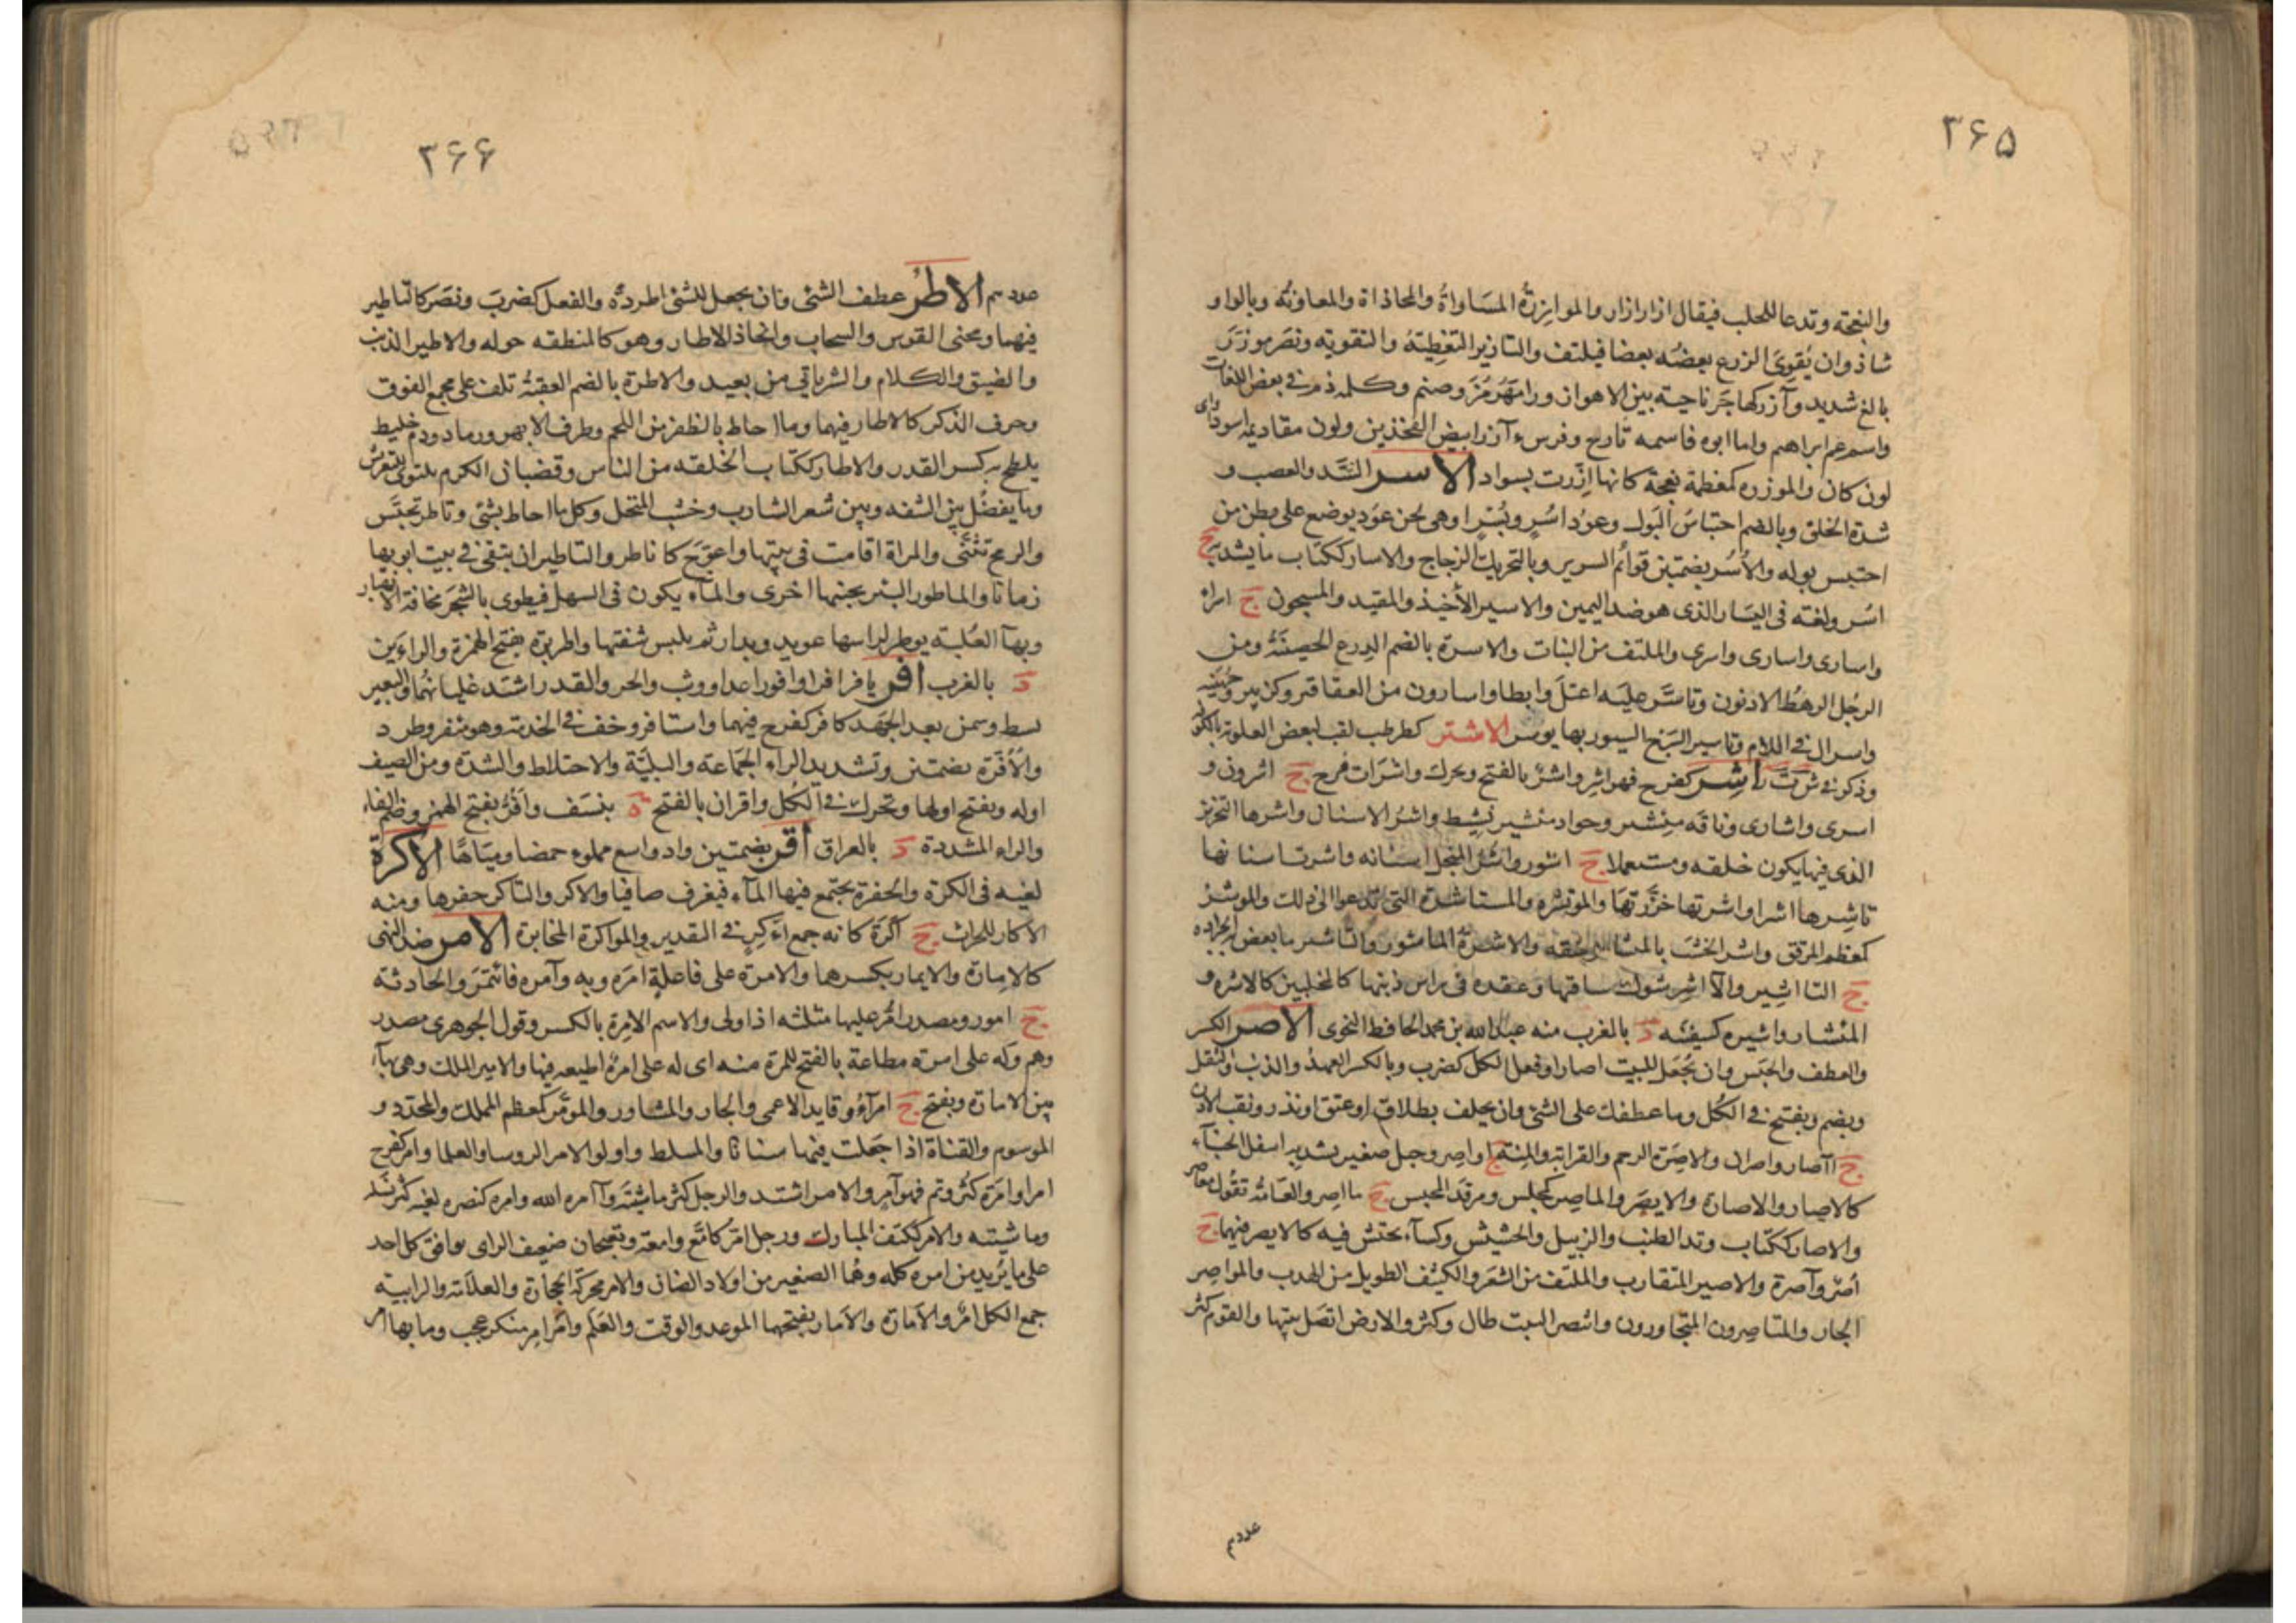 ۳۶۵
والنعجة وتدعا للحلب فيقال ازار ازار والموازرة المساواة والمحاذاة والمعاونة وبالواو
شاذ وان يقوى الزرع بعضه بعضا فيلتف والتازير التغطية والتقوية ونصر موزر
بالغ شديد وآزر كهاجر ناحية بين الاهواز ورامهرمز وصنم وكلمه ذم في بعض اللغات
واسم عم ابراهيم واما ابوه فاسمه تارح وفرس آزر ابيض الفخذين ولون مقاديمه اسود او اى
لون كان والموزره كمعظمة نعجة كانها ازرت بسواد الاسر الشد والعصب و
شدة الخلق وبالضم احتباس البول وعود اسر ويسر او هي لحن عود يوضع على بطن من
احتبس بوله والأسر بضمتين قوائم السرير وبالتحريك الزجاج والاسار ككتاب ما يشد به ج
اسر ولغته فى اليسار الذى هو ضد اليمين والاسير الأخيذ والمقيد والمسجون ج اسراء
واسارى واسارى واسرى والملتف من النبات والاسرة بالضم الدرع الحصينة ومن
الرجل الرهط الادنون وتاسر عليه اعتل وابطا واسارون من العقاقير وكزبير وجهينة
واسرال في اللام وتاسير السرج السيور بها يوسر الاشتر كطرطب لقب لبعض العلوية بالكوفة
وذكر في ش ت ر اشر كفرح فهو اشر واشر بالفتح ويحرك واشران فرح ج اشرون و
اسرى واشارى وناقه منشير وجواد منشير نشيط واشر الاسنان واشرها التحزيز
الذى فيها يكون خلقه ومستعملا ج اشور واشر المنجل اسنانه واشرت اسنانها
تاشرها اشرا واشرتها حززتها والموتشره والمستاشرة التى تدعوا الى ذلك والموشر
كمعظم المرقق واشر الخشب بالمنشار شقه والاشرة الماشور والتاشير ما يعض به الجراده
ج التاشير والاشر شوك ساقها وعقده فى راس ذنبها كالمخلبين كالاشره و
المنشار واشيره كسفينه د بالغرب منه عبد الله بن محمد الحافظ النحوى الاصر الكسر
والعطف والحبس وان يجعل للبيت اصارا وفعل الكل كضرب وبالكسر العهد والذنب والثقل
ويضم ويفتح في الكل وما عطفك على الشئ وان يحلف بطلاق او عتق او نذر وثقب الاذن
ج آصار واصران والاصرة الرحم والقرابة والمنة ج اواصر وحبل صغير يشد به اسفل الخباء
كالاصار والاصارة والايصر والماصر كمجلس ومرقد المحبس ج مااصر والعامة تقول معاصر
والاصار ككتاب وتد الطنب والزبيل والحشيش وكساء يحتش فيه كالايصر فيهما ج
أصر وآصرة والاصير المتقارب والملتف من الشعر والكثيف الطويل من الهدب والمواصر
الجار والمتاصرون المتجاورون وائتصر النبت طال وكثر والارض اتصل نبتها والقوم كثر
عددهم
۳۶۶
عددهم الاطر عطف الشئ وان يجعل للشئ اطردة والفعل كضرب ونصر كالتاطير
فيهما ومحنى القوس والسحاب واتخاذ الاطار وهو كالمنطقه حوله والاطير الذنب
والضيق والكلام والشر ياتي من بعيد والاطرة بالضم العقبة تلف على مجمع الفوق
وحرف الذكر كالاطار فيهما وما احاط بالظفر من اللحم وطرف الابهر ورماد ودم خليط
يلطخ به كسر القدر والاطار ككتاب الخلقه من الناس وقضبان الكرم يلتوى للتعريش
وما يفضل بين الشفه وبين شعر الشارب وخشب المنخل وكل ما احاط بشئ وتاطر تحبس
والرمح تثنى والمراة اقامت في بيتها واعوج كاناطر والتاطير ان تبقى في بيت ابويها
زمانا والماطور البئر بجنبها اخرى والماء يكون في السهل فيطوى بالشجر مخافة الانهيار
وبهآ العلبة يوطر لراسها عويد ويدار ثم يلبس شفتها واطريرة بفتح الهمزة والراءين
د بالغرب افر يافر افرا وافورا عدا ووثب والحر والقدر اشتد غليانهما والبعير
نسط وسمن بعد الجهد كافر كفرح فيهما واستافر وخف في الخدمة وهو مئفر وطرد
والأفرة بضمتين وتشديد الراء الجماعة والبلية والاختلاط والشدة ومن الصيف
اوله ويفتح اولها وتحرك في الكل واقران بالفتح ة بنسف وآفر بفتح الهمز وضم الفاء
والراء المشددة د بالعراق أقر بضمتين واد واسع مملوء حمضا ومياها الاكرة
لغيه فى الكرة والحفرة يجتمع فيها الماء فيغرف صافيا والاكر والتاكر حفرها ومنه
الاكار للحراث ج اكرة كانه جمع آكر في التقدير والمواكرة المخابرة الامر ضد النهى
كالامارة والايمار بكسرهما والامرة على فاعلة امره وبه وآمره فائتمر والحادثة
ج امور ومصدر امر عليها مثلثه اذا ولى والاسم الامرة بالكسر وقول الجوهرى مصدر
وهم وله على امرة مطاعة بالفتح للمرة منه اى له على امرة اطيعه فيها والامير الملك وهى بهآء
بين الامارة ويفتح ج امراء وقايد الاعمى والجار والمشاور والموتمر كمعظم المملك والمحدد و
الموسوم والقناة اذا جعلت فيها سنانا والمسلط واولو الامر الروسا والعلما وامر كفرح
امرا وامرة كثر وتم فهو آمر والامر اشتد والرجل كثر ماشيته وآمره الله وامره كنصره لغيه كثر نسله
وماشيته والامر ككتف المبارك ورجل امر كامع وامعة ويفتحان ضعيف الراى يوافق كل احد
على ما يريد من امره كله وهما الصغير من اولاد الضان والامر محركة الحجارة والعلامة والرابية
جمع الكل امر والامارة والامار بفتحهما الموعد والوقت والعلم وامر امر منكر عجب وما بها امر